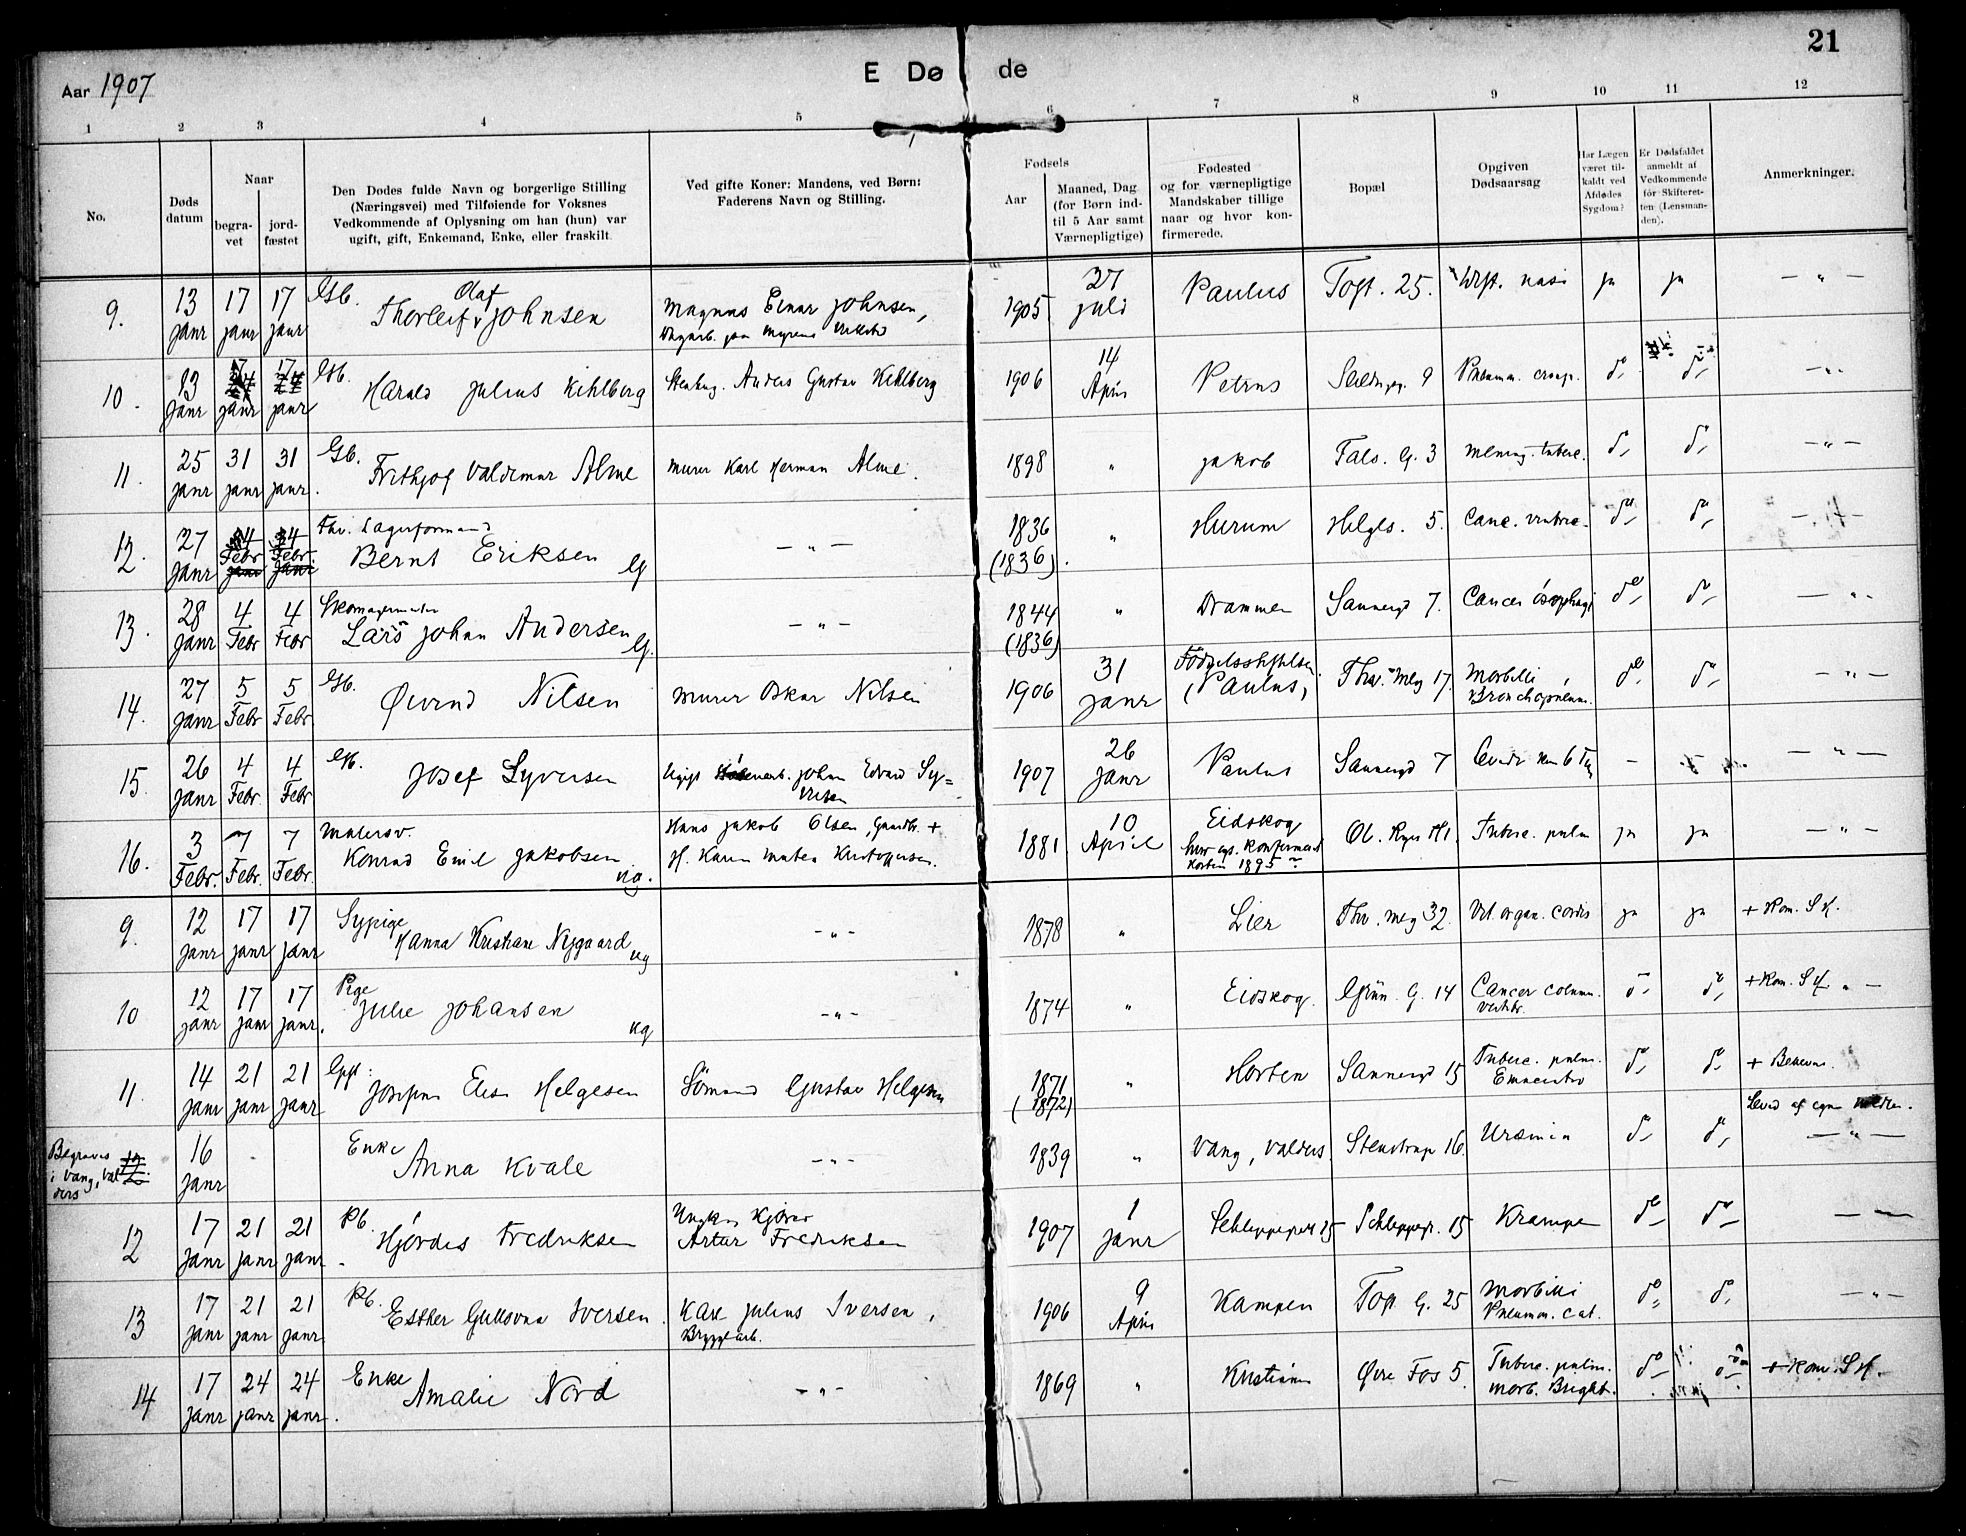 21
Aar 1907
E Dø de
1 2 3 4 5 6 7 8 9 10 11 12
No.
Døds datum
Naar
begra- vet
jord- fæstet
Den Dødes fulde Navn og borgerlige Stilling
(Næringsvei) med Tilføiende for Voksnes
Vedkommende af Oplysning om han (hun) var
ugift, gift, Enkemand, Enke, eller fraskilt
Ved gifte Koner: Mandens, ved Børn:
Faderens Navn og Stilling.
Fødsels
Aar
Maaned, Dag
(for Børn ind-
til 5 Aar samt
Værnepligtige)
Fødested
og for værnepligtige
Mandskaber tillige
naar og hvor kon-
firmerede.
Bopæl
Opgiven
Dødsaarsag
Har Lægen
været til-
kaldt ved
Afdødes
Sygdom?
Er Dødsfaldet
anmeldt af
Vedkommende
for Skifteret-
ten (Lensman-
den).
Anmerkninger.
9. 13 Janr 17 Janr 17 Janr Gb. Thorleif Olaf Johnsen Magnus Einar Johnsen, 1905 27 Juli Paulus Toft. 25. nasi ja ja — " —
10. 13 Janr 17 Janr 17 Janr Gb. Harald Julius Kihlberg Stenhug. Anders Gustav Kihlberg 1906 14 April Petrus 9 Pneum. croup. do do — " —
11. 25 Janr 31 Janr 31 Janr Gb. Frithjof Valdemar Alme Murer Karl Herman Alme 1898 " Jakob Fals. G. 3 Mening. tuberc. do do — " —
12. 27 Janr 4 Febr 4 Febr Fhv. Lagerformand Bernt Eriksen G — " — 1836 (1836). " Hurum Helgs. 5. Canc. ventric. do do — " —
13. 28 Janr 4 Febr 4 Febr Skomagermester Lars Johan Andersen G. — " — 1844 (1836) " Drammen Sannergd 7. Cancer ösophagi do do — " —
14. 27 Janr 5 Febr 5 Febr Gb. Øivind Nilsen Murer Oskar Nilsen 1906 31 Janr Fødselsstiftelsen (Paulus) Thv. Meg 17. Morbilli Bronchopneum. do do — " —
15. 26 Janr 4 Febr 4 Febr Gb. Josef Syversen Ugift John Edvard Sy=versen 1907 26 Janr Paulus Sannergd 7 Levede kun 6 T — — " —
16. 3 Febr. 7 Febr. 7 Febr. Malersv. Konrad Emil Jakobsen ug. Hans Jakob Olsen, Gaardbr. + H. Karen Mathea Kristoffersen. 1881 10 April Eidskog Konfirmert Horten 1895 Ol. Ryes Pl 1. Tuberc. pulm ja ja — " —
9. 12 Janr 17 Janr 17 Janr Sypige Hanna Kristiane Nygaard ug — " — 1878 " Lier Thv. Meg 32. Vit. organ. cordis ja ja + Kom. S H.
10 12 Janr 17 Janr 17 Janr. Pige Julie Johansen ug — " — 1874 " Eidskog. Grün. G. 14 Cancer column. vertebr. do do + Kom. S H. " —
11. 14 Janr 21 Janr 21 Janr Gift: Josefine Elise Helgesen Sömand Gustav Helgesen 1871 (1872) " Horten Sannergd 15 Tuberc. pulm. do do +
Begraves i Vang, Valders 16 Janr Enke Anna Kvale — " — 1839 " Vang, Valders Stenstrup 16. Uræmia do do Levede af egne Midler. — " —
12 17 Janr 21 Janr 21 Janr Pb. Hjördis Fredriksen Kjörer Artur Fredriksen 1907 1 Janr Schleppegrell 15 Schleppegr. 15 Krampe do do — —
13 17 Janr 21 Janr 21 Janr Pb. Esther Gullovna Iversen. Karl Julius Iversen, Bryggearb. 1906 9 April Kampen Toft. G. 25 Morbilli Pneumon. cat. do do — " —
14 17 Janr 24 Janr 24 Janr. Enke Amalie Nord — " — 1869 " Kristiania Övre Fos 5. Tuberc. pulm. Morb. Bright. do do + Kom. S H.